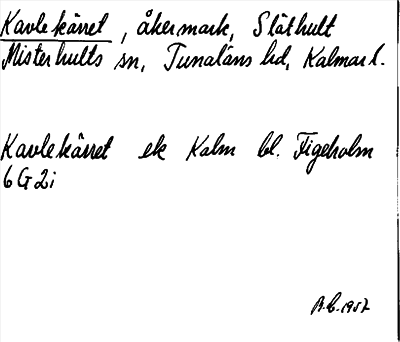 Kavlekärret, åkermark, Släthult
Misterhults sn, Tunaläns hd, Kalmar l.
Kavlekärret ek Kalm bl. Figeholm
6G2i
1957